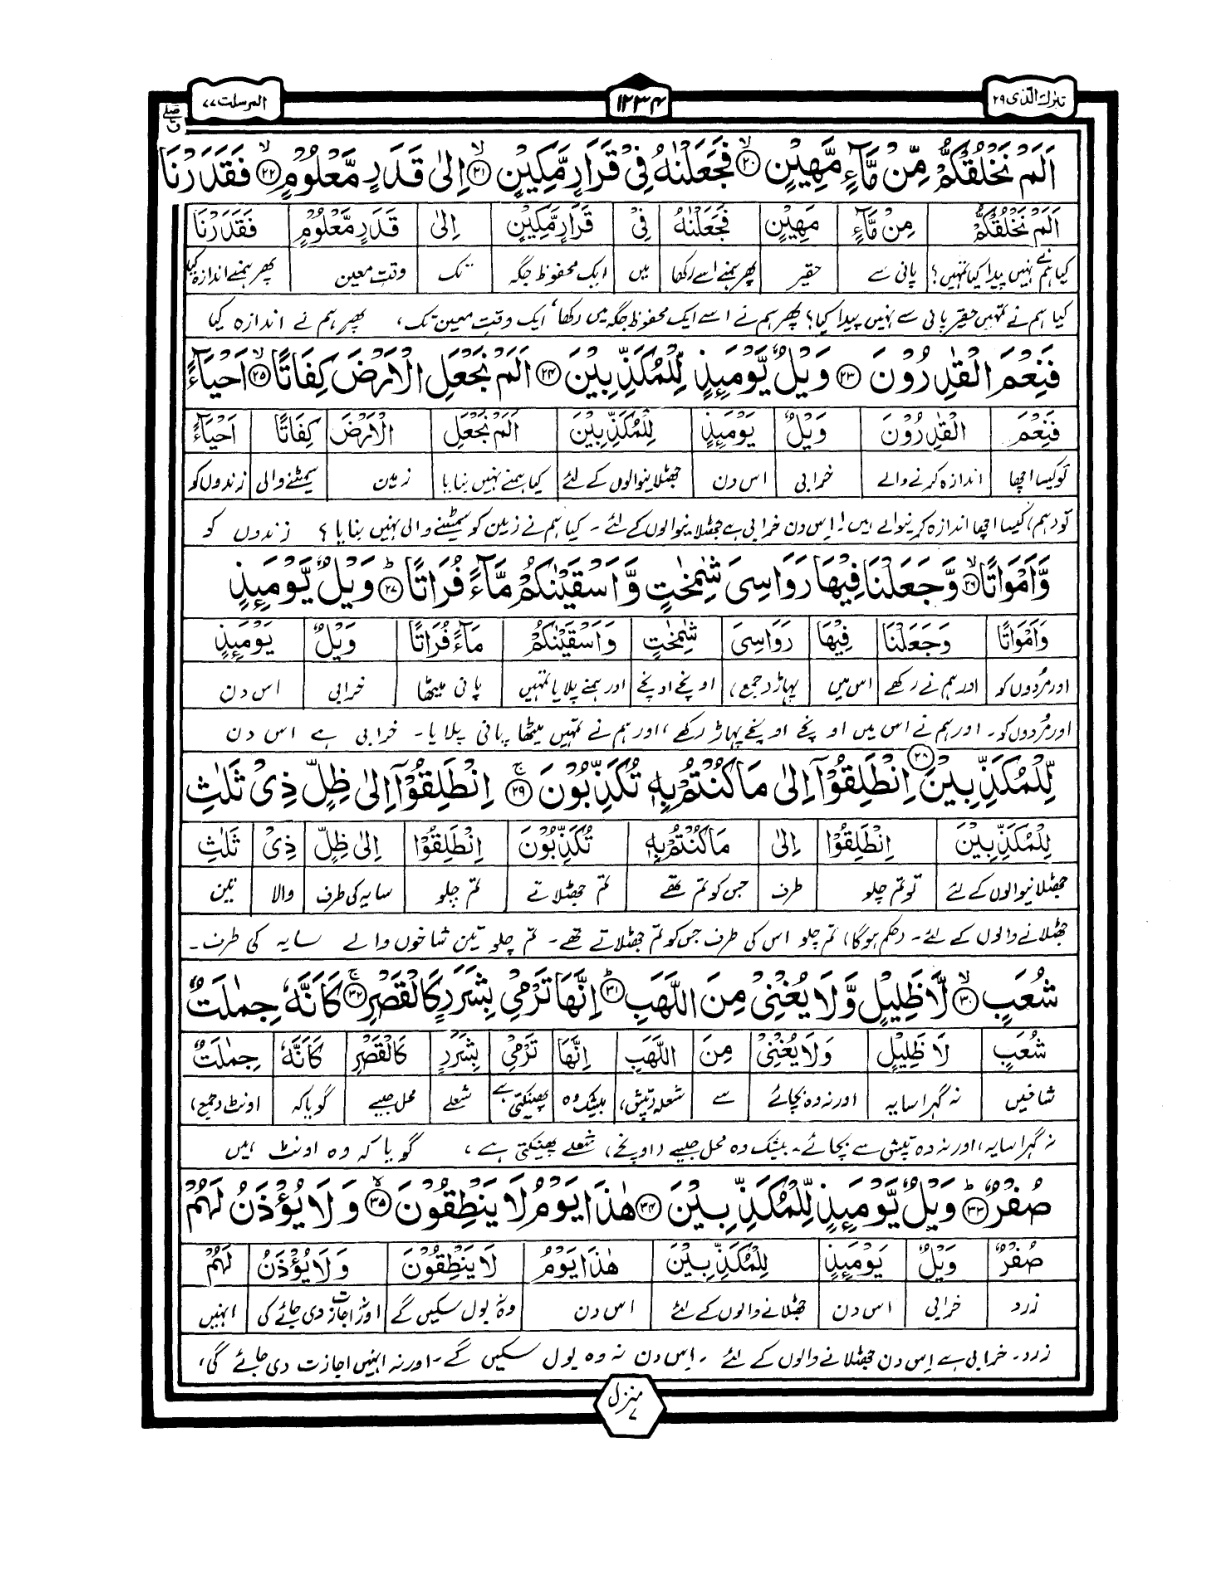 تبٰرك الّذی ۲۹
۱۲۳۴
المرسلت ۷۷
اَلَمْ نَخْلُقْكُّمْ مِّنْ مَّآءٍ مَّهِیْنٍ ۙ۲۰ فَجَعَلْنٰهُ فِیْ قَرَارٍ مَّكِیْنٍ ۙ۲۱ اِلٰی قَدَرٍ مَّعْلُوْمٍ ۙ۲۲ فَقَدَرْنَا
اَلَمْ نَخْلُقْكُّمْ | مِنْ مَّآءٍ | مَهِیْنٍ | فَجَعَلْنٰهُ | فِیْ | قَرَارٍ مَّكِیْنٍ | اِلٰی | قَدَرٍ مَّعْلُوْمٍ | فَقَدَرْنَا
کیا ہم نے نہیں پیدا کیا تمہیں؟ | پانی سے | حقیر | پھر ہمنے اسے رکھا | میں | ایک محفوظ جگہ | تک | وقتِ معین | پھر ہمنے اندازہ کیا
کیا ہم نے تمہیں حقیر پانی سے نہیں پیدا کیا؟ پھر ہم نے اسے ایک محفوظ جگہ میں رکھا، ایک وقتِ معین تک، پھر ہم نے اندازہ کیا
فَنِعْمَ الْقٰدِرُوْنَ ۲۳ وَیْلٌ یَّوْمَىِٕذٍ لِّلْمُكَذِّبِیْنَ ۲۴ اَلَمْ نَجْعَلِ الْاَرْضَ كِفَاتًا ۙ۲۵ اَحْیَآءً
فَنِعْمَ | الْقٰدِرُوْنَ | وَیْلٌ | یَوْمَىِٕذٍ | لِّلْمُكَذِّبِیْنَ | اَلَمْ نَجْعَلِ | الْاَرْضَ | كِفَاتًا | اَحْیَآءً
تو کیسا اچھا | اندازہ کرنے والے | خرابی | اس دن | جھٹلانیوالوں کے لئے | کیا ہمنے نہیں بنایا | زمین | سمیٹنے والی | زندوں کو
تو (ہم) کیسا اچھا اندازہ کرنیوالے ہیں! اس دن خرابی ہے جھٹلانیوالوں کے لئے ۔ کیا ہم نے زمین کو سمیٹنے والی نہیں بنایا؟ زندوں کو
وَّاَمْوَاتًا ۙ۲۶ وَّجَعَلْنَا فِیْهَا رَوَاسِیَ شٰمِخٰتٍ وَّاَسْقَیْنٰكُمْ مَّآءً فُرَاتًا ؕ۲۷ وَیْلٌ یَّوْمَىِٕذٍ
وَاَمْوَاتًا | وَجَعَلْنَا | فِیْهَا | رَوَاسِیَ | شٰمِخٰتٍ | وَاَسْقَیْنٰكُمْ | مَآءً فُرَاتًا | وَیْلٌ | یَوْمَىِٕذٍ
اور مُردوں کو | اور ہم نے رکھے | اس میں | پہاڑ (جمع) | اونچے اونچے | اور ہمنے پلایا تمہیں | پانی میٹھا | خرابی | اس دن
اور مُردوں کو۔ اور ہم نے اس میں اونچے اونچے پہاڑ رکھے، اور ہم نے تمہیں میٹھا پانی پلایا۔ خرابی ہے اس دن
لِّلْمُكَذِّبِیْنَ ۲۸ اِنْطَلِقُوْۤا اِلٰی مَا كُنْتُمْ بِهٖ تُكَذِّبُوْنَ ۚ۲۹ اِنْطَلِقُوْۤا اِلٰی ظِلٍّ ذِیْ ثَلٰثِ
لِلْمُكَذِّبِیْنَ | اِنْطَلِقُوْا | اِلٰی | مَا كُنْتُمْ بِهٖ | تُكَذِّبُوْنَ | اِنْطَلِقُوْا | اِلٰی ظِلٍّ | ذِیْ | ثَلٰثِ
جھٹلانیوالوں کے لئے | تو تم چلو | طرف | جس کو تم تھے | تم جھٹلاتے | تم چلو | سایہ کی طرف | والا | تین
جھٹلانے والوں کے لئے۔ (حکم ہوگا) تم چلو اس کی طرف جس کو تم جھٹلاتے تھے۔ تم چلو تین شاخوں والے سایہ کی طرف۔
شُعَبٍ ۙ۳۰ لَّا ظَلِیْلٍ وَّلَا یُغْنِیْ مِنَ اللَّهَبِ ؕ۳۱ اِنَّهَا تَرْمِیْ بِشَرَرٍ كَالْقَصْرِ ۚ۳۲ كَاَنَّهٗ جِمٰلَتٌ
شُعَبٍ | لَا ظَلِیْلٍ | وَلَا یُغْنِیْ | مِنَ | اللَّهَبِ | اِنَّهَا | تَرْمِیْ | بِشَرَرٍ | كَالْقَصْرِ | كَاَنَّهٗ | جِمٰلَتٌ
شاخیں | نہ گہرا سایہ | اور نہ وہ بچائے | سے | شعلہ (تپش) | بیشک وہ | پھینکتی ہے | شعلے | محل جیسے | گویا کہ | اونٹ (جمع)
نہ گہرا سایہ، اور نہ وہ تپش سے بچائے۔ بیشک وہ محل جیسے (اونچے) شعلے پھینکتی ہے، گویا کہ وہ اونٹ ہیں
صُفْرٌ ؕ۳۳ وَیْلٌ یَّوْمَىِٕذٍ لِّلْمُكَذِّبِیْنَ ۳۴ هٰذَا یَوْمُ لَا یَنْطِقُوْنَ ۙ۳۵ وَلَا یُؤْذَنُ لَهُمْ
صُفْرٌ | وَیْلٌ | یَوْمَىِٕذٍ | لِلْمُكَذِّبِیْنَ | هٰذَا یَوْمُ | لَا یَنْطِقُوْنَ | وَلَا یُؤْذَنُ | لَهُمْ
زرد | خرابی | اس دن | جھٹلانے والوں کے لئے | اس دن | وہ نہ بول سکیں گے | اور نہ اجازت دی جائے گی | انہیں
زرد۔ خرابی ہے اِس دن جھٹلانے والوں کے لئے ۔ اِس دن نہ وہ بول سکیں گے۔ اور نہ انہیں اجازت دی جائے گی،
منزل ۷